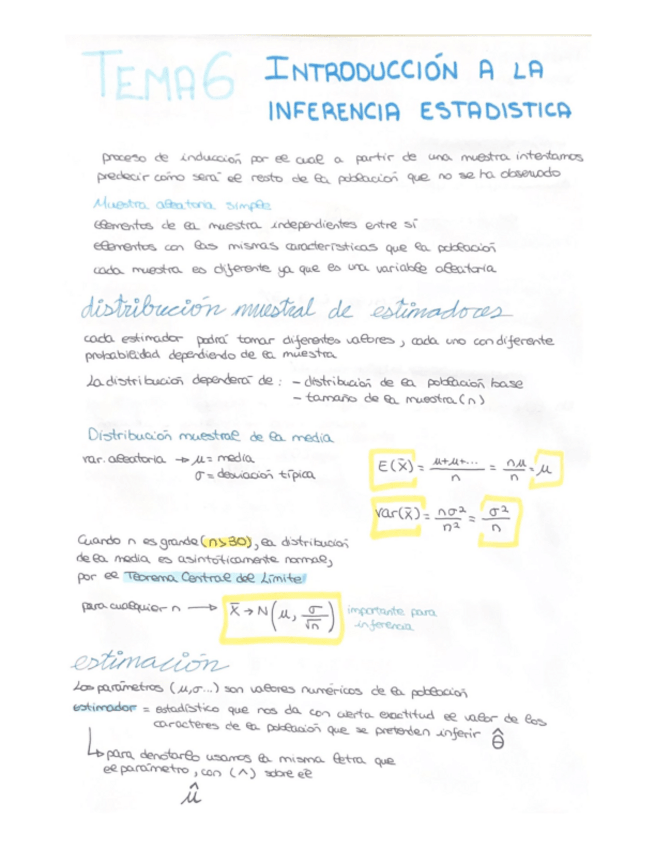 TEMA 6 INTRODUCCIÓN A LA
INFERENCIA ESTADISTICA
proceso de inducción por el cual a partir de una muestra intentamos
predecir cómo será el resto de la población que no se ha observado
Muestra aleatoria simple
elementos de la muestra independientes entre sí
elementos con las mismas características que la población
cada muestra es diferente ya que es una variable aleatoria
distribución muestral de estimadores
cada estimador podrá tomar diferentes valores, cada uno con diferente
probabilidad dependiendo de la muestra
La distribución dependerá de: - distribución de la población base
- tamaño de la muestra (n)
Distribución muestral de la media
var. aleatoria → μ = media
σ = desviación típica
E(x̄) = μ+μ+... / n = nμ / n = μ
var(x̄) = nσ² / n² = σ² / n
Cuando n es grande (n>30), la distribución
de la media es asintóticamente normal,
por el Teorema Central del Límite
para cualquier n → x̄ → N(μ, σ/√n) importante para
inferencia
estimación
Los parámetros (μ,σ...) son valores numéricos de la población
estimador = estadístico que nos da con cierta exactitud el valor de los
caracteres de la población que se pretenden inferir θ̂
↳ para denotarlo usamos la misma letra que
el parámetro, con (^) sobre él
μ̂